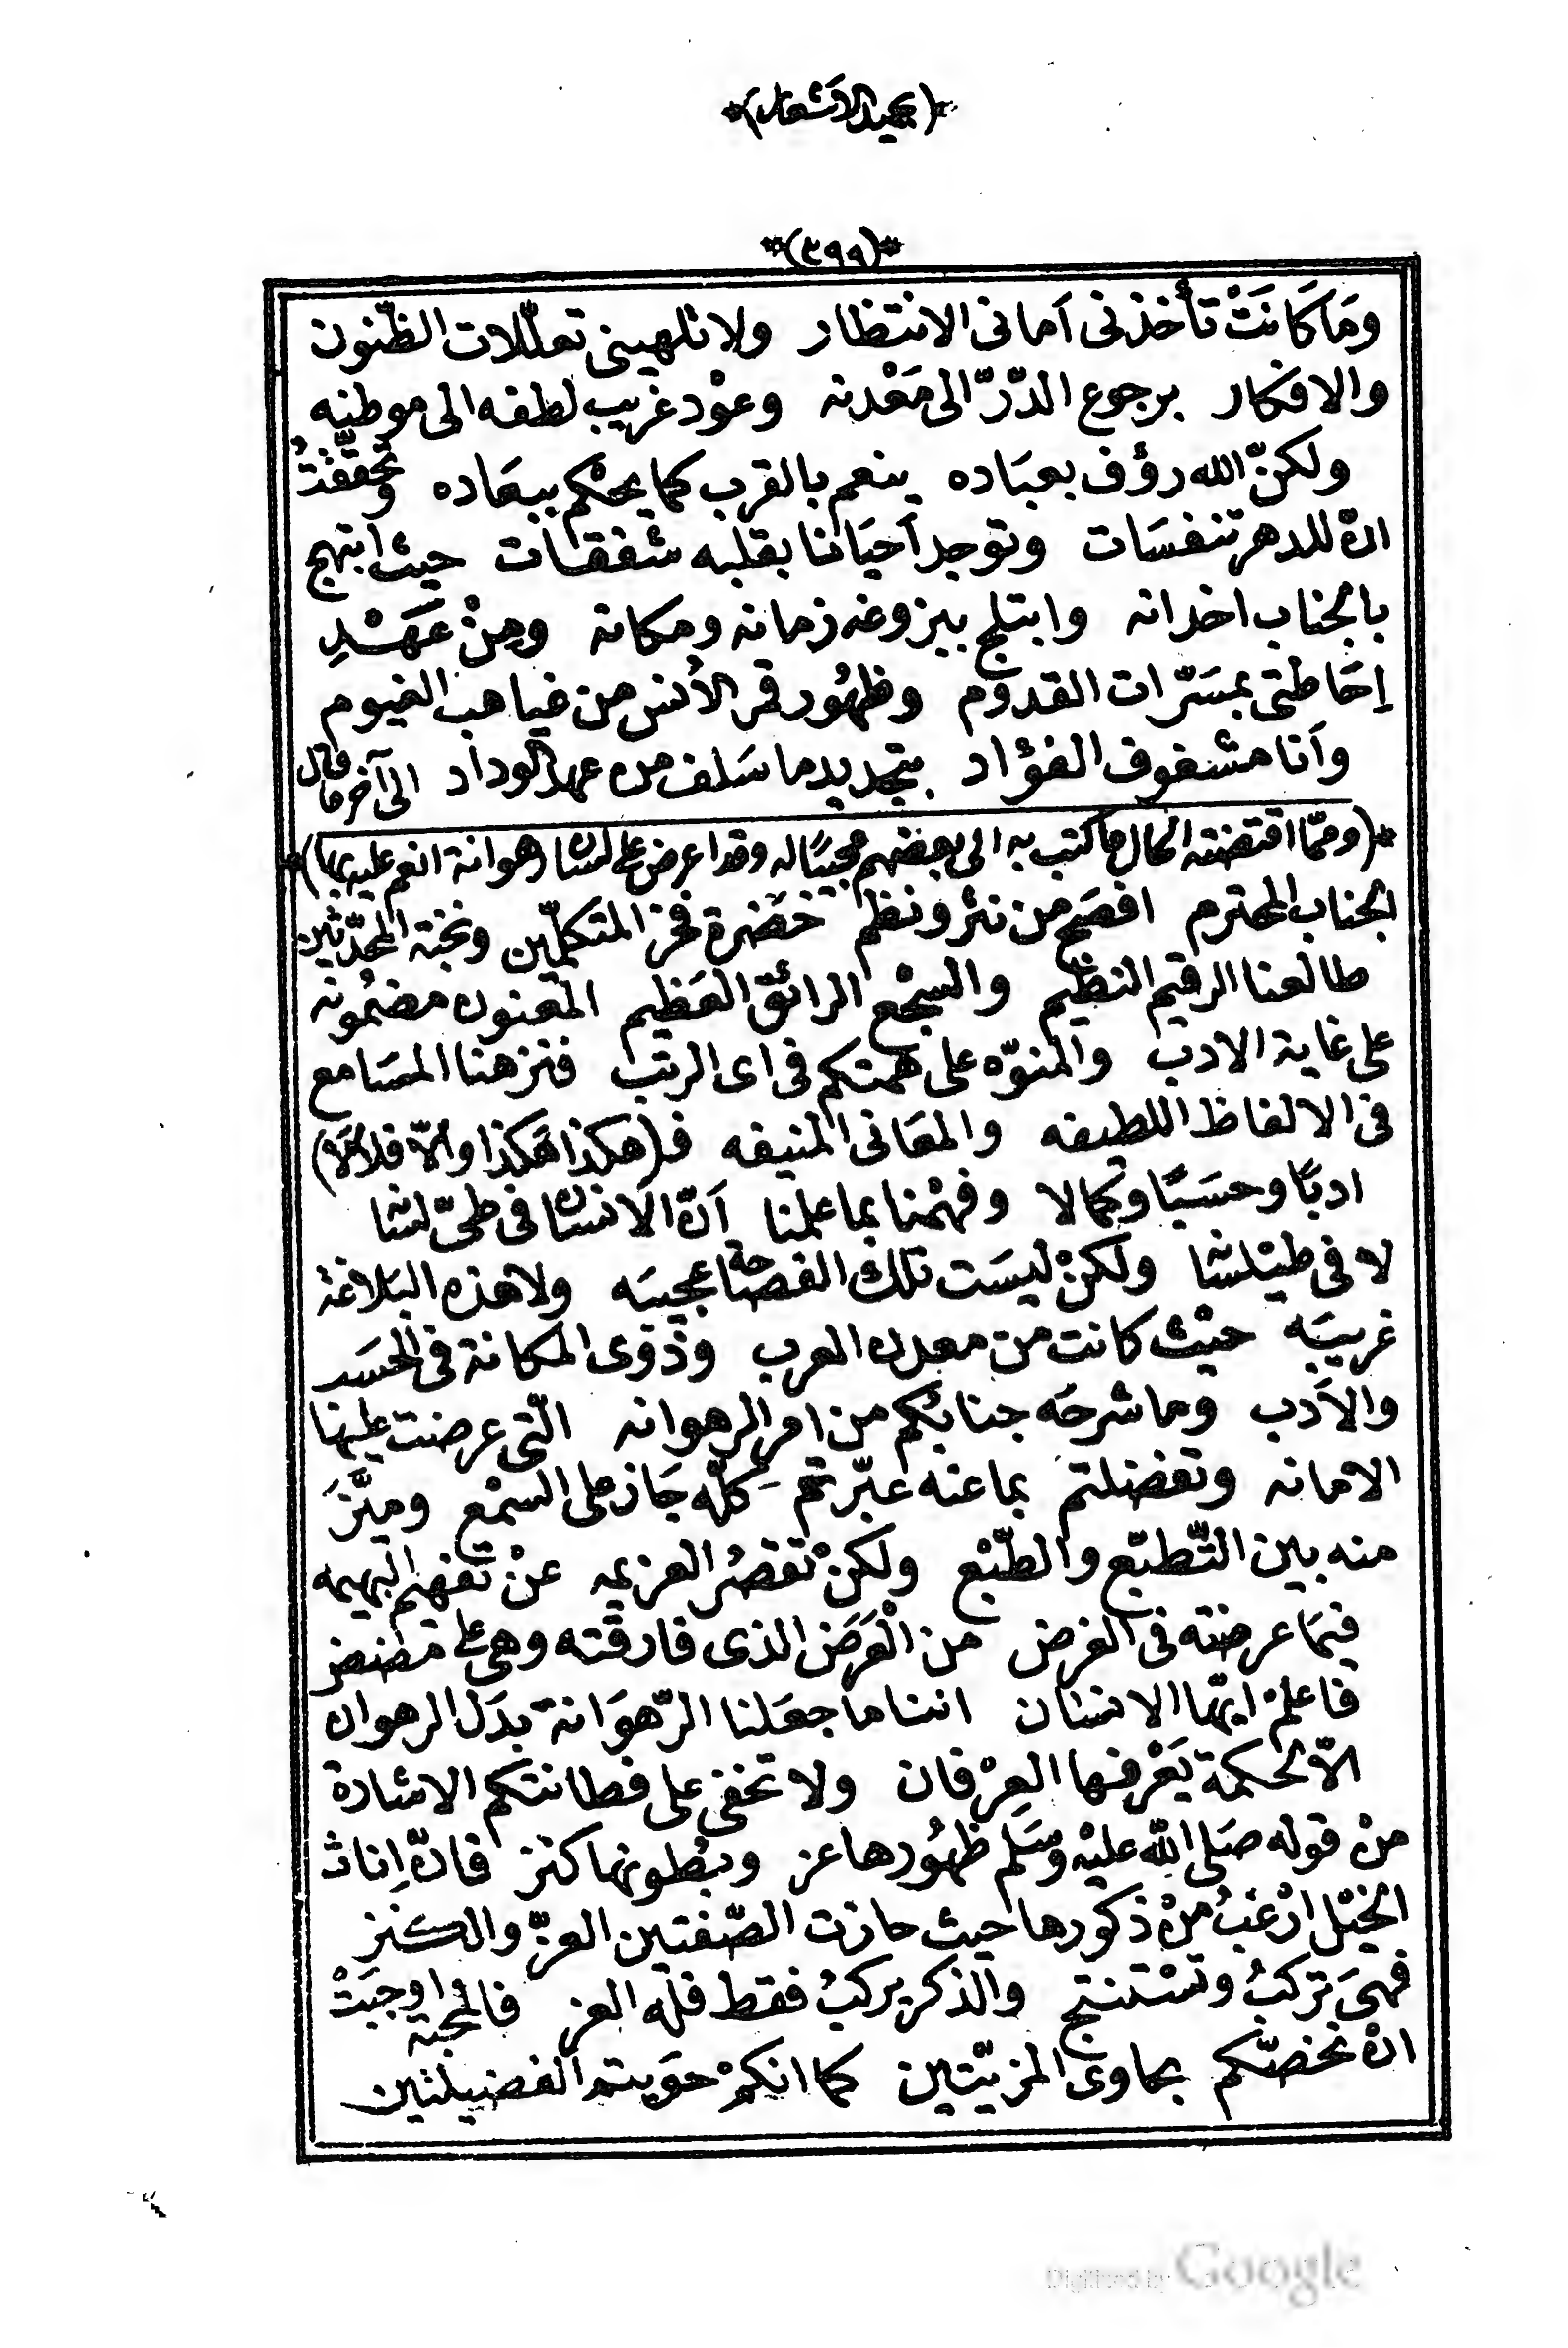 *(بحميد الاشعار)*
*(٣٩٩)*
ومَا كَانَتْ تأخذنى اَمانى الانتظار ولا تلهينى تعلّلات الظّنون
والافكار برجوع الدّرّ الى مَعْدنه وعوْد غريب لطفه الى موطنه
ولكنّ الله رؤف بعبَاده ينعم بالقرب كما يحْكم ببعَاده وتحقّقْتُ
انّ للدهر تنفسَات وتوجد اَحيَانا بقلبه شفقات حيث ابتهج
بالجناب اخدانه وابتلج ببزوغه زمانه ومكانه ومِنْ عَهْدِ
اِحَاطتى بمسَرّات القدوم وظهُور قمر الاُنس من غياهب الغيوم
واَنا مشغوف الفؤاد بتجديد ما سَلف من عهد الوداد الى آخر ما قال
*(وممّا اقتضته الحال ما كتب به الى بعضهم مجيبًا له وقد اعرض على لسان رهوانة انعم عليه بها)*
الجناب المحترم افصَح من نثر ونظم حَضرة فخر المتكلّمين ونخبة المحدّثين
طالعنا الرقيم النظيم والسجْع الرائق العَظيم المعنون مضمُونه
على غاية الادب والمنوّه على همتكم فى اى الرتب فنزهنا المسَامع
فى الالفاظ اللطيفه والمعَانى المنيفه فـ(هكذا هَكذا والاّ فلا لاَ)
ادبًا وحسَبًا وكمالا وفهْمنا بما علمنا اَنّ الاَنسان فى طىّ لسَانه
لا فى طيْلسَانه ولكنْ ليسَت تلك الفصَاحة عجيبَه ولا هذه البَلاغة
غريبَه حيْث كانت من معدن العرب وذوى المكانة فى الحسَب
والاَدب وما شرحَه جنابكُم من امر الرهوانه الّتى عرضت عليْها
الامانه وتفضلتم بما عنه عبّرتم كلّه جَاز على السمْع وميَّزَ
منه بين التَّطبّع والطّبْع ولكنْ تقصُر العزيمه عنْ تفهيم البهيمه
فيمَا عرضته فى الغرض من الْعَرَض الذى فارقته وهى على مضض
فاعلمْ ايّها الانسَان اننا ما جعَلنا الرّهوَانة بدَل الرهوان
الاّ لحكمة يَعْرفها العِرْفان ولا تخفى على فطانتكم الاشارة
منْ قوله صَلى اللّه عليْه وسَلم ظهُورها عز وبُطونها كنز فانّ اِناث
الخيْل ارْغبُ منْ ذكورها حيث حازت الصّفتين العزّ والكنز
فهىَ تركبُ وتسْتنتج والذكر يركبُ فقط فله العز فالمحبّة اوجبَتْ
انْ نخصّكم بحاوى المزيّتين كما انكمْ حوَيتم الفضيلتين
Digitized by Google